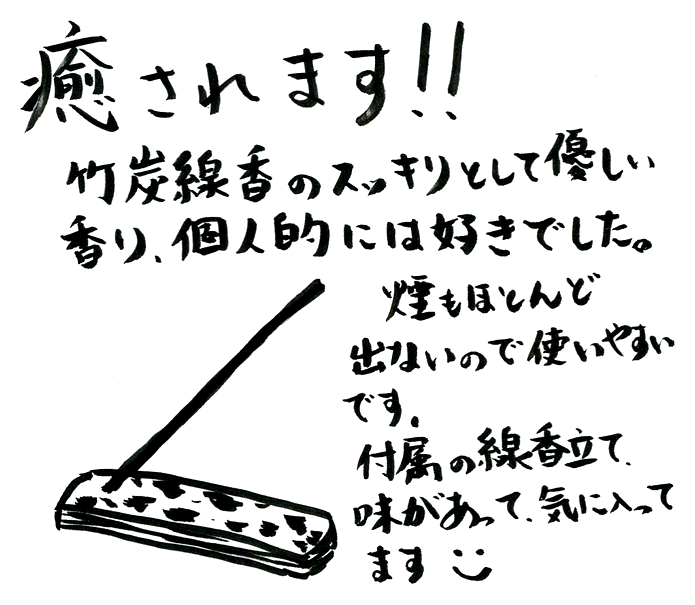 癒されます!!
竹炭線香のスッキリとして優しい
香り、個人的には好きでした。
煙もほとんど
出ないので使いやすい
です。
付属の線香立て、
味があって、気に入って
ます